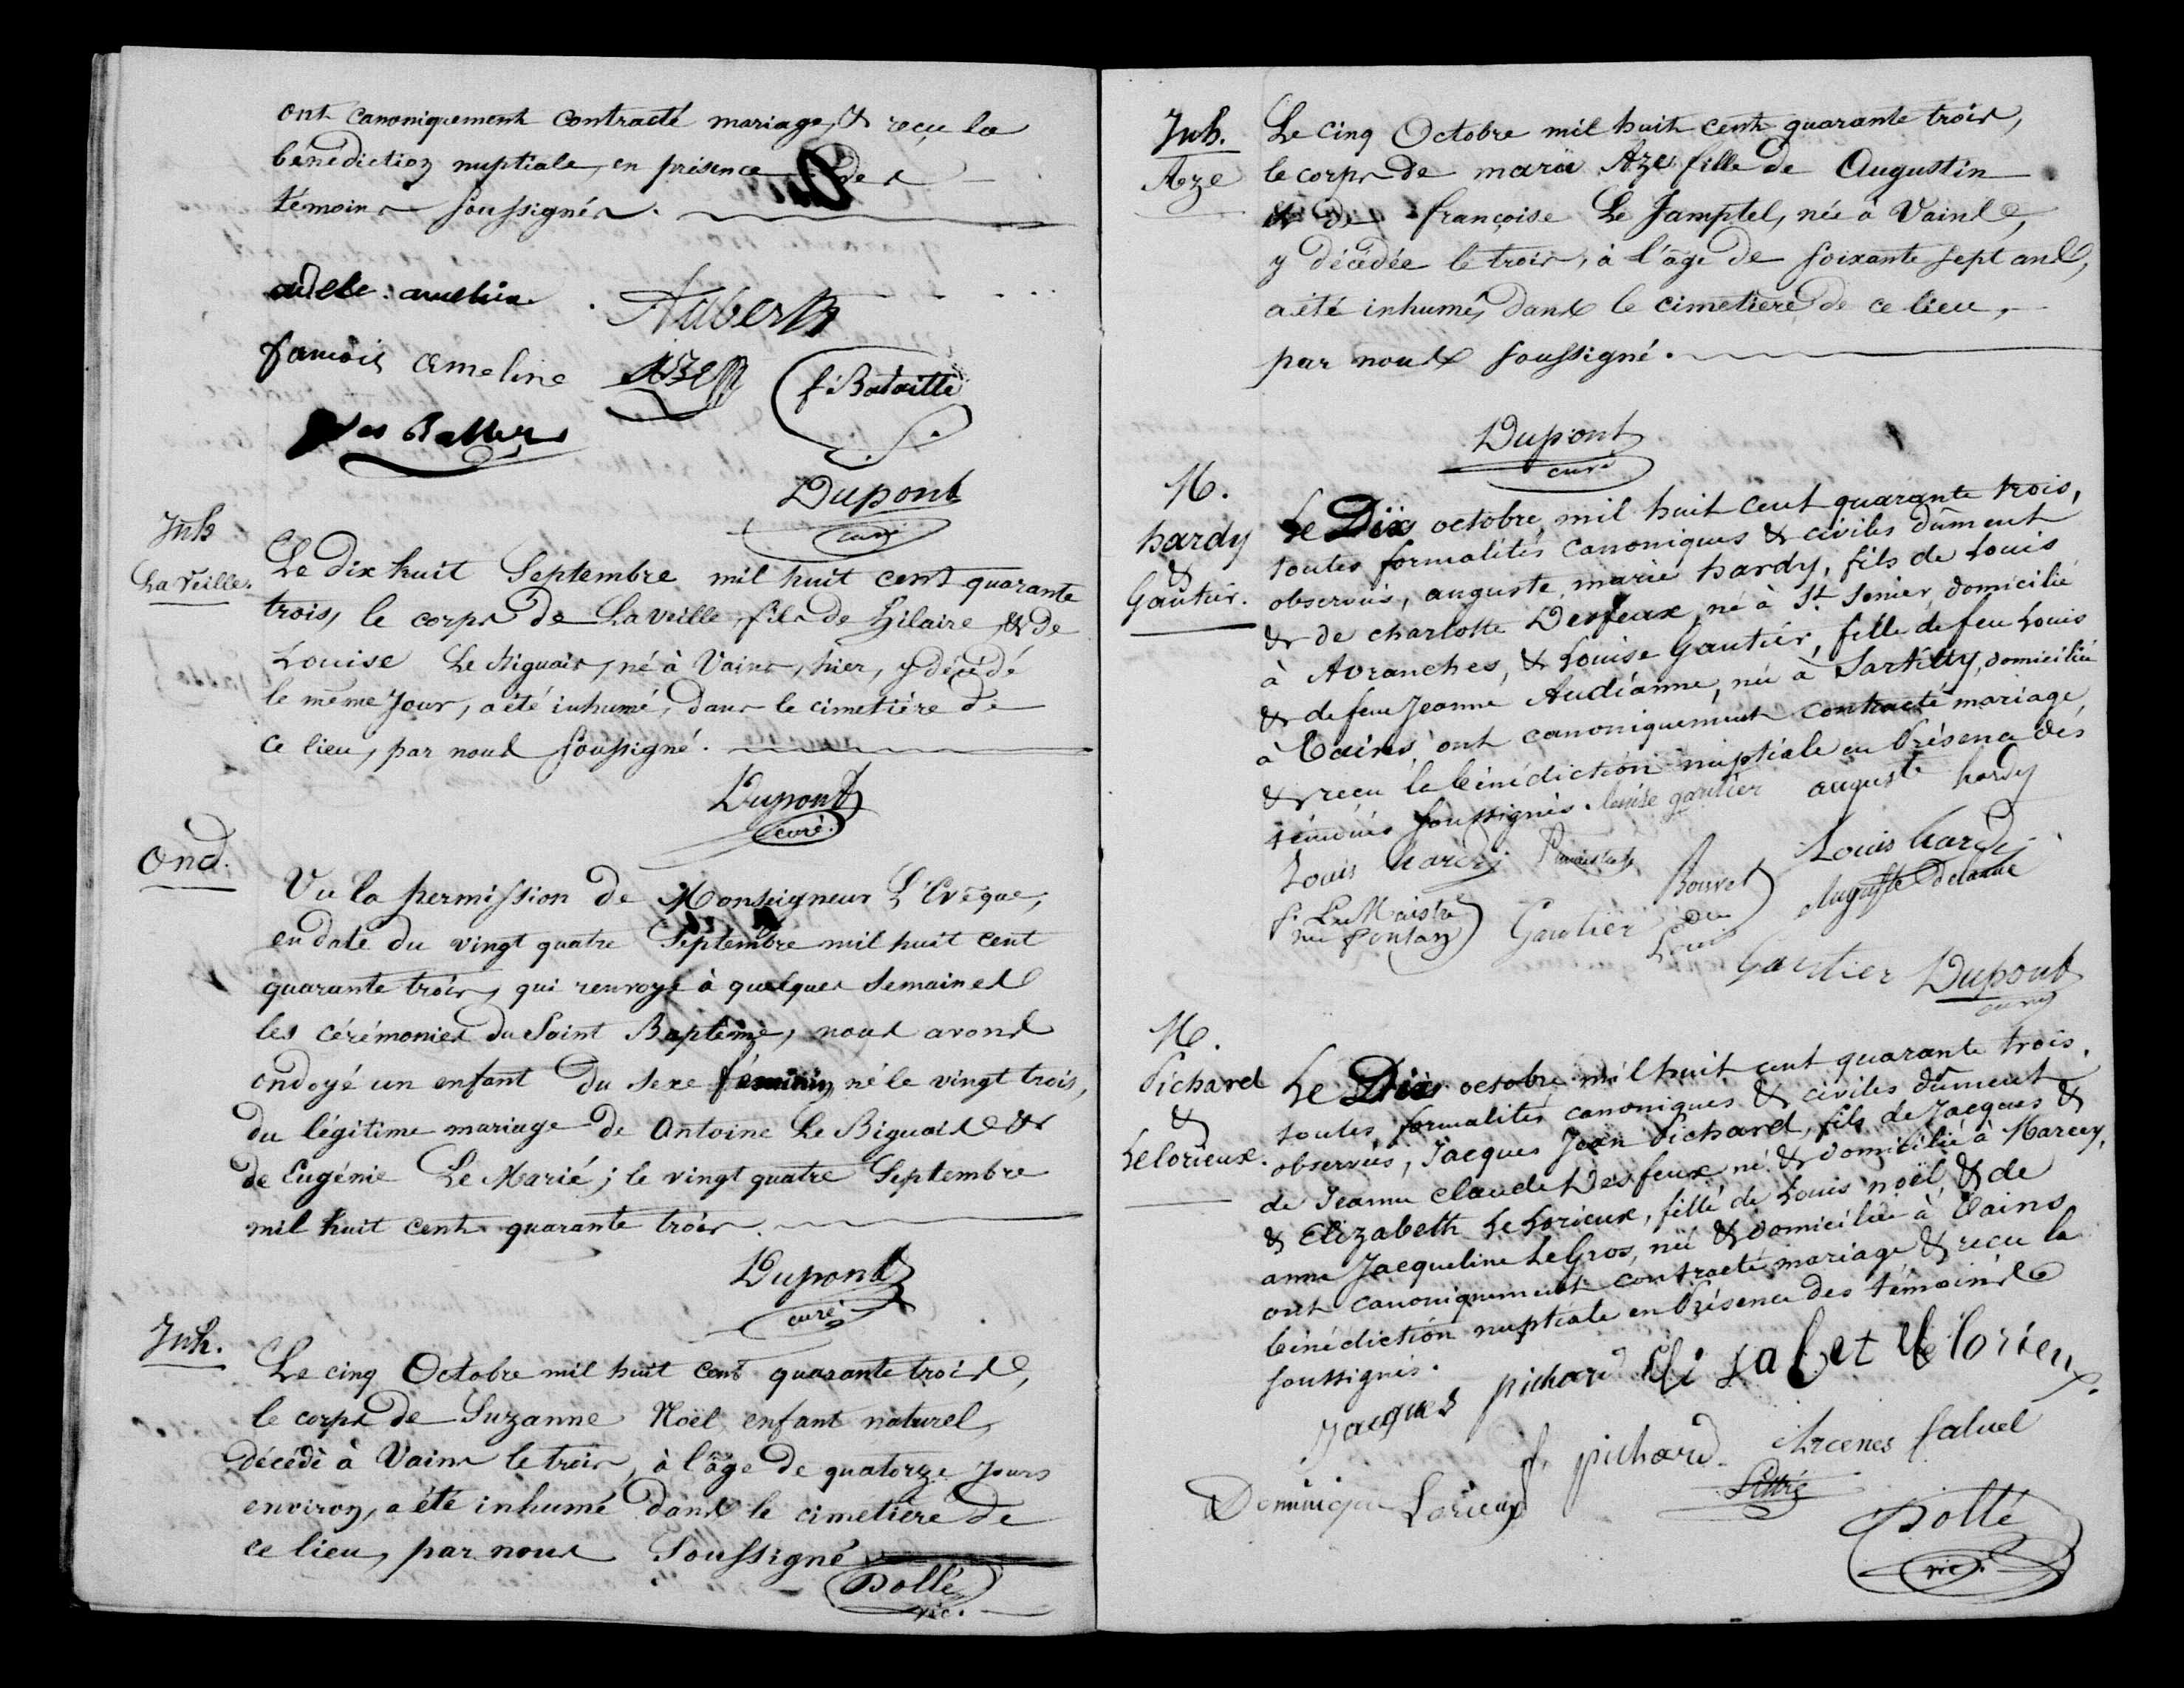 ont canoniquement contracté mariage, & reçu la
bénédiction nuptiale, en présence des
témoins soussignés.
adèle ameline
Aubert
francois ameline
f. Bataille
Dupont
curé
Inh
La Veille.
Le dix huit Septembre mil huit cent quarante
trois, le corps de La Veille, fils de Hilaire, & de
Louise Le Biguais, né à Vains, hier, y décédé
le même jour, a été inhumé, dans le cimetière de
ce lieu, par nous soussigné.
Dupont
curé.
Ond.
Vu la permission de Monseigneur L'Evêque,
en date du vingt quatre Septembre mil huit cent
quarante trois, qui renvoye à quelques semaines
les cérémonies du Saint Baptême, nous avons
ondoyé un enfant du sexe féminin, né le vingt trois,
du légitime mariage de Antoine Le Biguais &
de Eugénie Le Marié; le vingt quatre Septembre
mil huit cent quarante trois.
Dupont
curé
Inh.
Le cinq Octobre mil huit cent quarante trois,
le corps de Suzanne Noël enfant naturel,
décédé à Vains le trois, à l'âge de quatorze jours
environ, a été inhumé dans le cimetière de
ce lieu, par nous Soussigné
Dollé
vic.
Inh.
Aze
Le cinq Octobre mil huit cent quarante trois,
le corps de marie Aze fille de Augustin
& de françoise Le Jamptel, née à Vains,
y décédée le trois, à l'âge de soixante sept ans,
a été inhumé, dans le cimetière de ce lieu,
par nous soussigné.
Dupont
curé
M.
hardy
&
Gautier.
Le Dix octobre mil huit cent quarante trois,
toutes formalités canoniques & civiles dûment
observées, auguste marie hardy, fils de Louis
& de charlotte Desfeux, né à St. Senier, domicilié
à Avranches, & Louise Gautier, fille de feu Louis
& de feue Jeanne Audianne, née à Sartilly, domiciliée
à Vains, ont canoniquement contracté mariage,
& reçu la bénédiction nuptiale en Présence des
témoins soussignés. louise gautier auguste hardy
Louis hardy
Louis hardy
f. Le Maistre
née
Gautier
Bouvet
Louis
Auguste delaune
Gautier
Dupont
curé
M.
Pichard
&
Lelorieux.
Le Dix octobre mil huit cent quarante trois,
toutes formalités canoniques & civiles dûment
observées, Jacques Jean Pichard, fils de Jacques &
de Jeanne claude Desfeux, né & domicilié à Marcey,
& Elizabeth Le Lorieux, fille de Louis noël & de
anne Jacqueline LeGros, née & domiciliée à Vains
ont canoniquement contracté mariage & reçu la
bénédiction nuptiale en Présence des témoins
soussignés.
Jacques pichard Elisabet le lorieux.
f. pichard
Arcenes faluel
Dominique Lorieux
Dollé
vic.